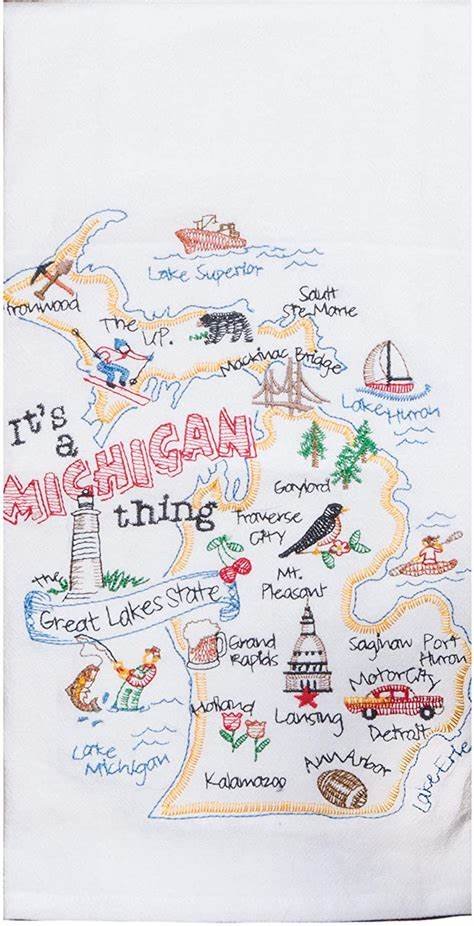 Lake Superior
Ironwood
The
U.P.
Sault
Ste Marie
Mackinac Bridge
Lake Huron
It's
a
MICHIGAN
thing
Gaylord
Traverse
City
the
Great Lakes State
Mt.
Pleasant
Grand
Rapids
Saginaw
Port
Huron
Motor City
Holland
Lansing
Detroit
Lake
Michigan
Ann Arbor
Kalamazoo
Lake Erie